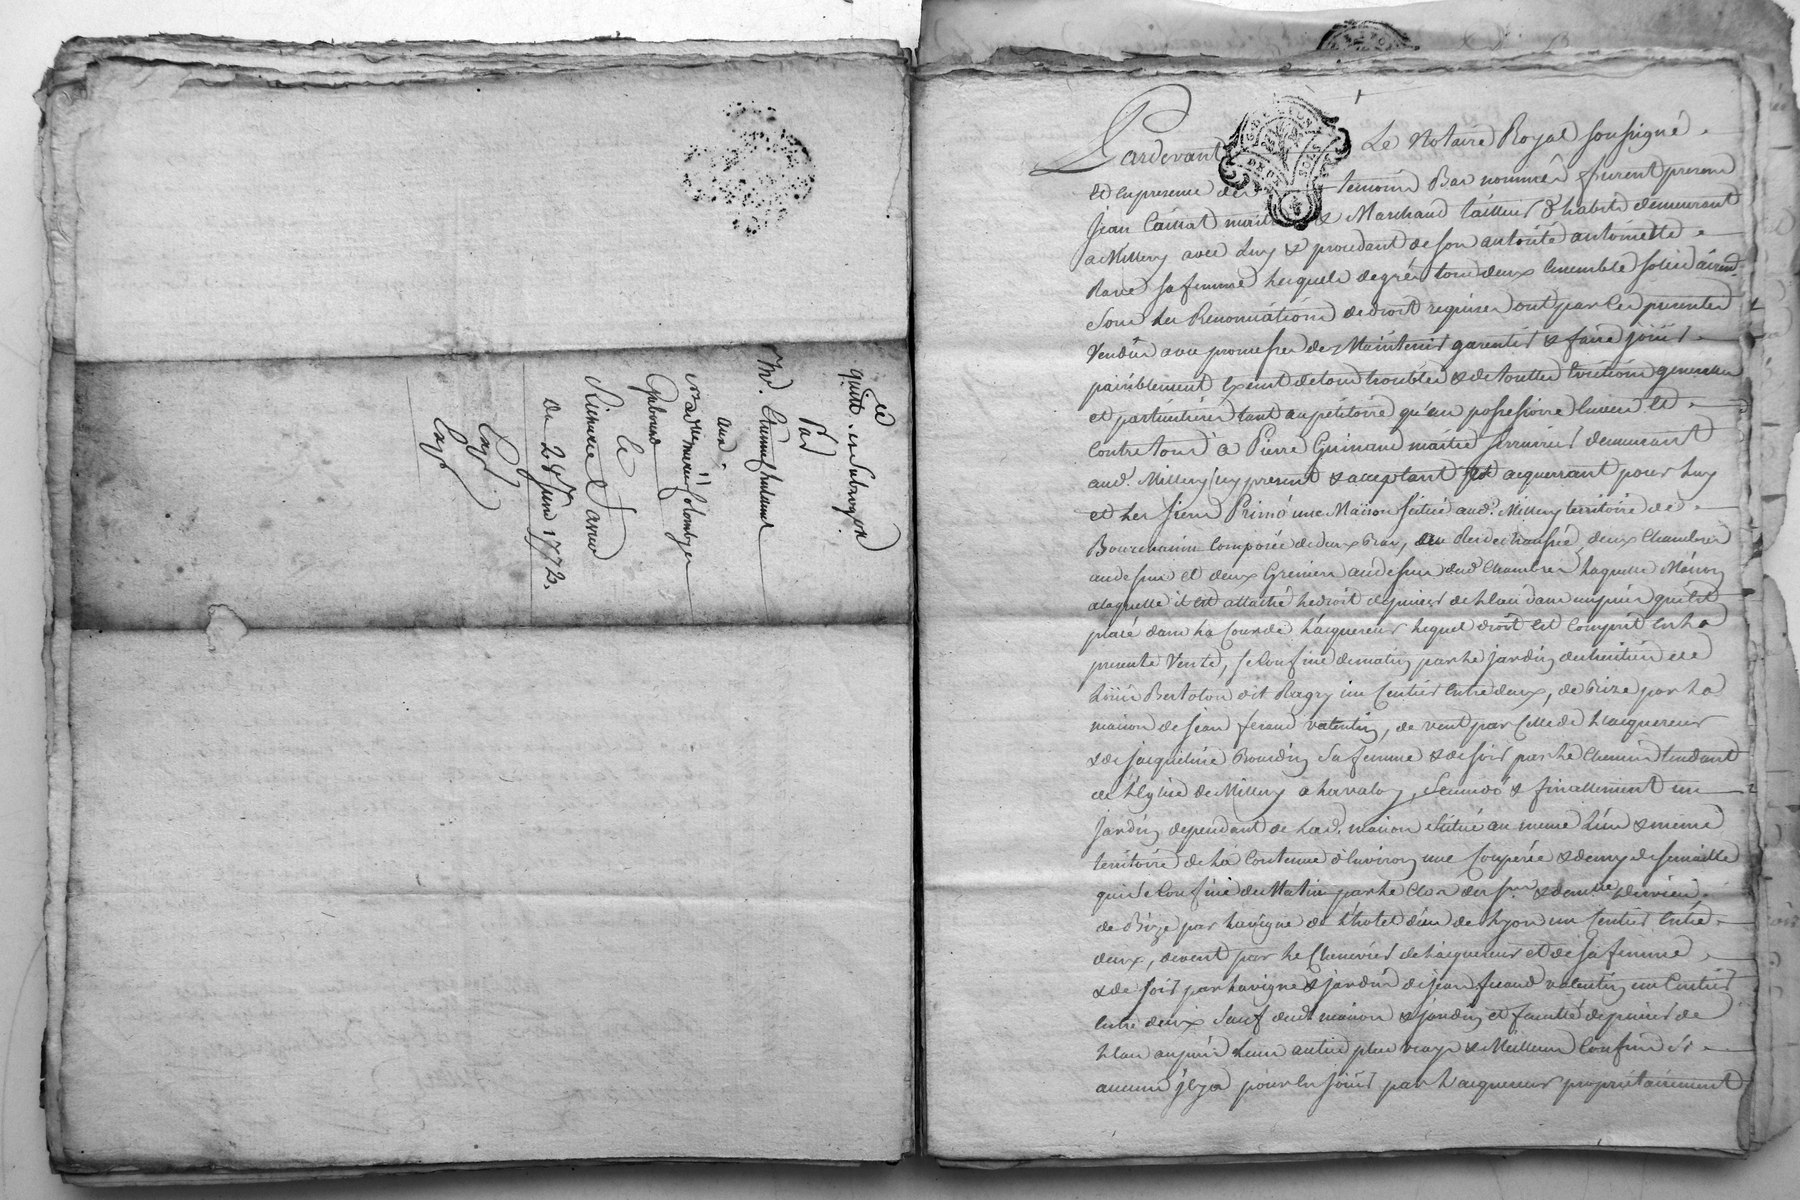 quitt. et subrogaon
Par
Mr.
aux
Gabourd
Le
du 28 Juin 1772.
Exp.
Exp.
Pardevant Le Notaire Royal soussigné
et en presence des temoins Bas nommés furent presens
Jean Marchand tailleur d'habits demeurant
a Millery avec Luy & procedant de son autorité antoinette
sa femme Lesquels de gré tous deux Ensemble solidairemt.
sous Les Renonciations de droit requises ont par Les presentes
Vendus avec promesses de Maintenir garentir & faire jouir
paisiblement Exemt de tous troubles & de touttes Evictions generales
et particulieres tant au petitoire qu'au possessoire Envers Et
Contre tous a Pierre Guinand maitre serrurier demeurant
aud. Millery icy present & acceptant Et acquerrant pour Luy
et Les siens Primo une Maison scitué aud. Millery territoire de
Composée de deux Bas, au Rez de chaussée, deux Chambres
au dessus et deux Greniers au dessus desd. Chambres Laquelle Maison
a laquelle il Est attaché Le droit de puiser de L'eau dans un puis qui Est
placé dans La Cour de L'acquereur Lequel droit Est Compris En La
presente Vente, se Confine de matin par Le jardin des heritiers de
Bertolon dit un sentier Entre deux, de Bize par La
maison de jean feraud valentin, de vent par Celle de L'acquereur
& de jacqueline sa femme & de soir par Le Chemin tendant
de L'Eglise de Millery a Secundo & finallement un
jardin dependant de Lad. maison scitué au meme Lieu & meme
territoire de La Contenue d'Environ une Couperée & demy de semaille
qui se Confine du Matin par Le Clos des srs. &
de Bize par La vigne de L'hotel dieu de Lyon un sentier Entre
deux, de vent par Le Chenevier de L'acquereur et de sa femme
& de soir par La vigne & jardin de jean feraud valentin un sentier
Entre deux sauf desd. maison & jardin et faculté de puiser de
L'eau au puis Leurs autres plus vrays & Meilleurs Confins si
aucuns il y a pour En jouir par L'acquereur proprietairement